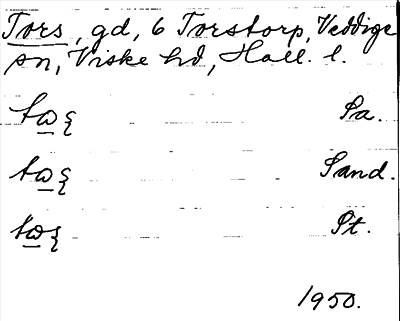 Tors, gd, 6 Torstorp, Veddige
sn, Viske hd, Hall. l.
Pa.
Sand.
Pt.
1950.